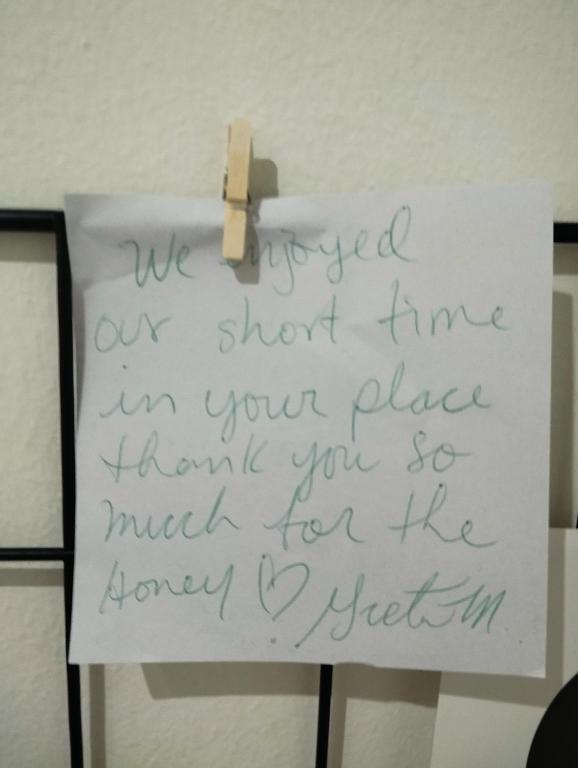 We enjoyed
our short time
in your place
thank you so
much for the
Honey ♡